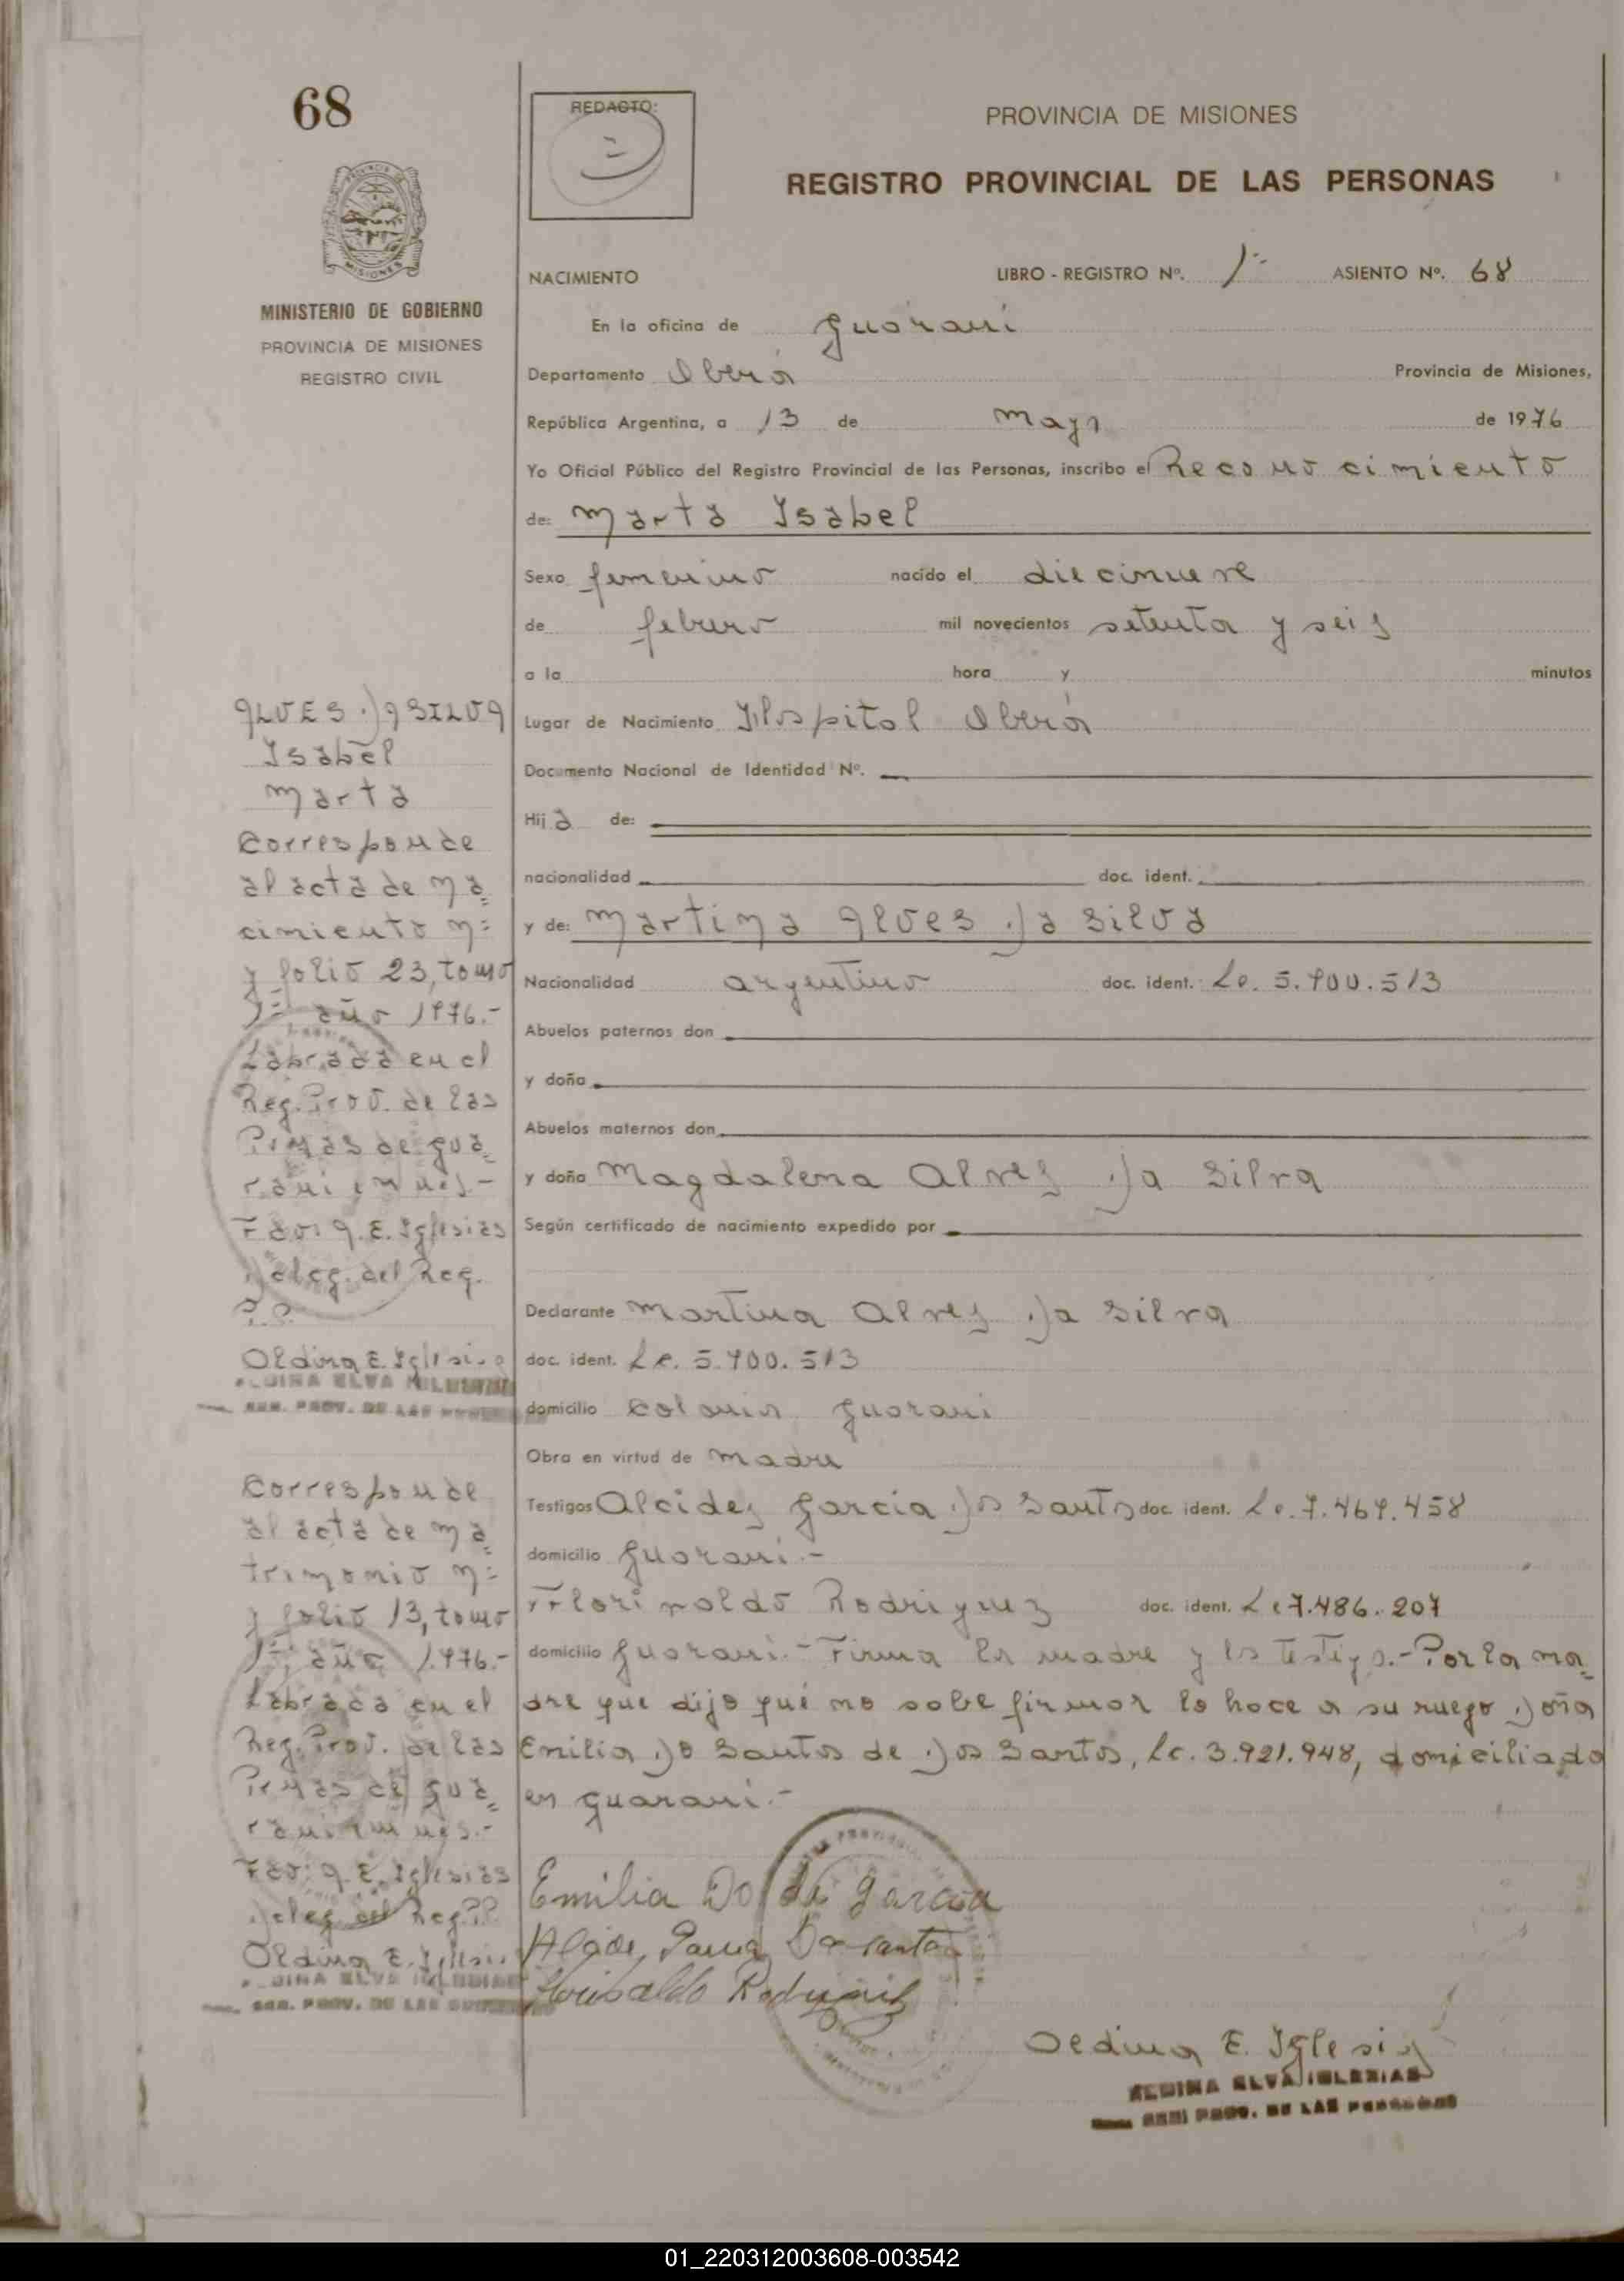 68
MINISTERIO DE GOBIERNO
PROVINCIA DE MISIONES
REGISTRO CIVIL
ALVES DA SILVA
Isabel
Marta
Corresponde
al acta de na=
cimiento nº
y folio 23, tomo
1º año 1976.-
Labrada en el
Reg. Prov. de las
Pernas de Gua=
raní en Mès.-
Fdo: A. E. Iglesias
Deleg. del Reg.
P.P.
Aldina E. Iglesias
ALDINA ELVA IGLESIAS
REG. PROV. DE LAS PERSONAS
Corresponde
al acta de ma=
trimonio nº
y folio 13, tomo
1º, año 1976.-
Labrada en el
Reg. Prov. de las
Pernas de Gua=
raní en Mès.-
Fdo: A. E. Iglesias
Deleg. del Reg. P.P.
Aldina E. Iglesias
ALDINA ELVA IGLESIAS
REG. PROV. DE LAS PERSONAS
REDACTO:
PROVINCIA DE MISIONES
REGISTRO PROVINCIAL DE LAS PERSONAS
NACIMIENTO LIBRO - REGISTRO Nº. 1º- ASIENTO Nº. 68
En la oficina de Guaraní
Departamento Oberá Provincia de Misiones,
República Argentina, a 13 de Mayo de 1976
Yo Oficial Público del Registro Provincial de las Personas, inscribo el Reconocimiento
de: Marta Isabel
Sexo femenino nacido el diecinueve
de febrero mil novecientos setenta y seis
a la hora y minutos
Lugar de Nacimiento Hospital Oberá
Documento Nacional de Identidad Nº.
Hija de:
nacionalidad doc. ident.
y de: Martina Alves Da Silva
Nacionalidad argentina doc. ident.: Lc. 5.900.513
Abuelos paternos don
y doña
Abuelos maternos don
y doña Magdalena Alves Da Silva
Según certificado de nacimiento expedido por
Declarante Martina Alves Da Silva
doc. ident. Lc. 5.900.513
domicilio Colonia Guaraní
Obra en virtud de Madre
Testigos Alcides Garcia Dos Santos doc. ident. Le. 7.469.458
domicilio Guaraní.-
Florivaldo Rodriguez doc. ident. Le 7.486.207
domicilio Guaraní.- Firma la madre y los testigos.- Por la ma=
dre que dijo qué no sabe firmar lo hace a su ruego Doña
Emilia Do Santos de Dos Santos, Lc. 3.921.948, domiciliada
en Guaraní.-
Emilia Do de Garcia
Rodriguez
Aldina E. Iglesias
ALDINA ELVA IGLESIAS
REG. PROV. DE LAS PERSONAS
01_220312003608-003542